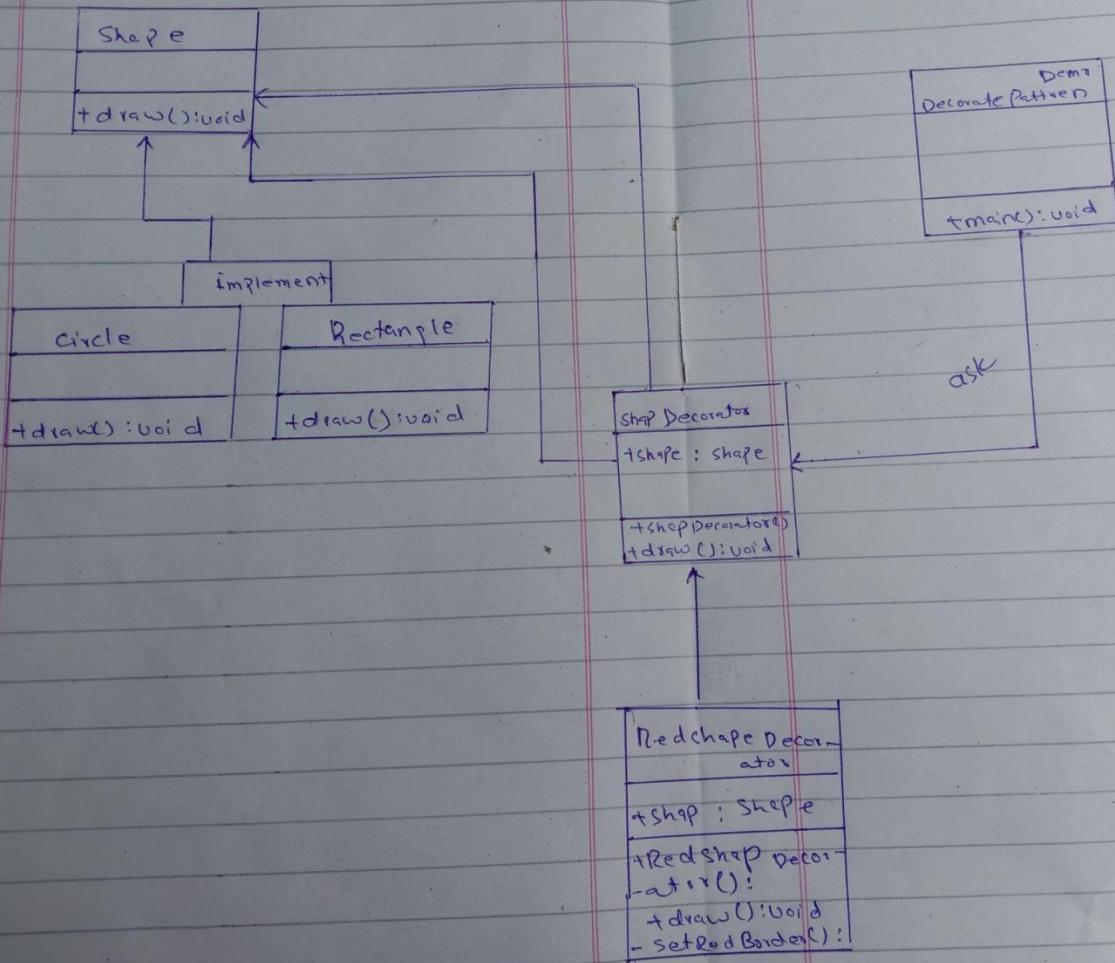 Shape
+draw():void
Demo
Decorate Pattren
+main():void
implement
Circle
+draw():void
Rectangle
+draw():void
ask
Shap Decorator
+shape : shape
+shapDecorator()
+draw():void
Redshape Decor-
ator
+shap : Shape
+Redshap Decor-
-ator():
+draw():void
- SetRedBorder():